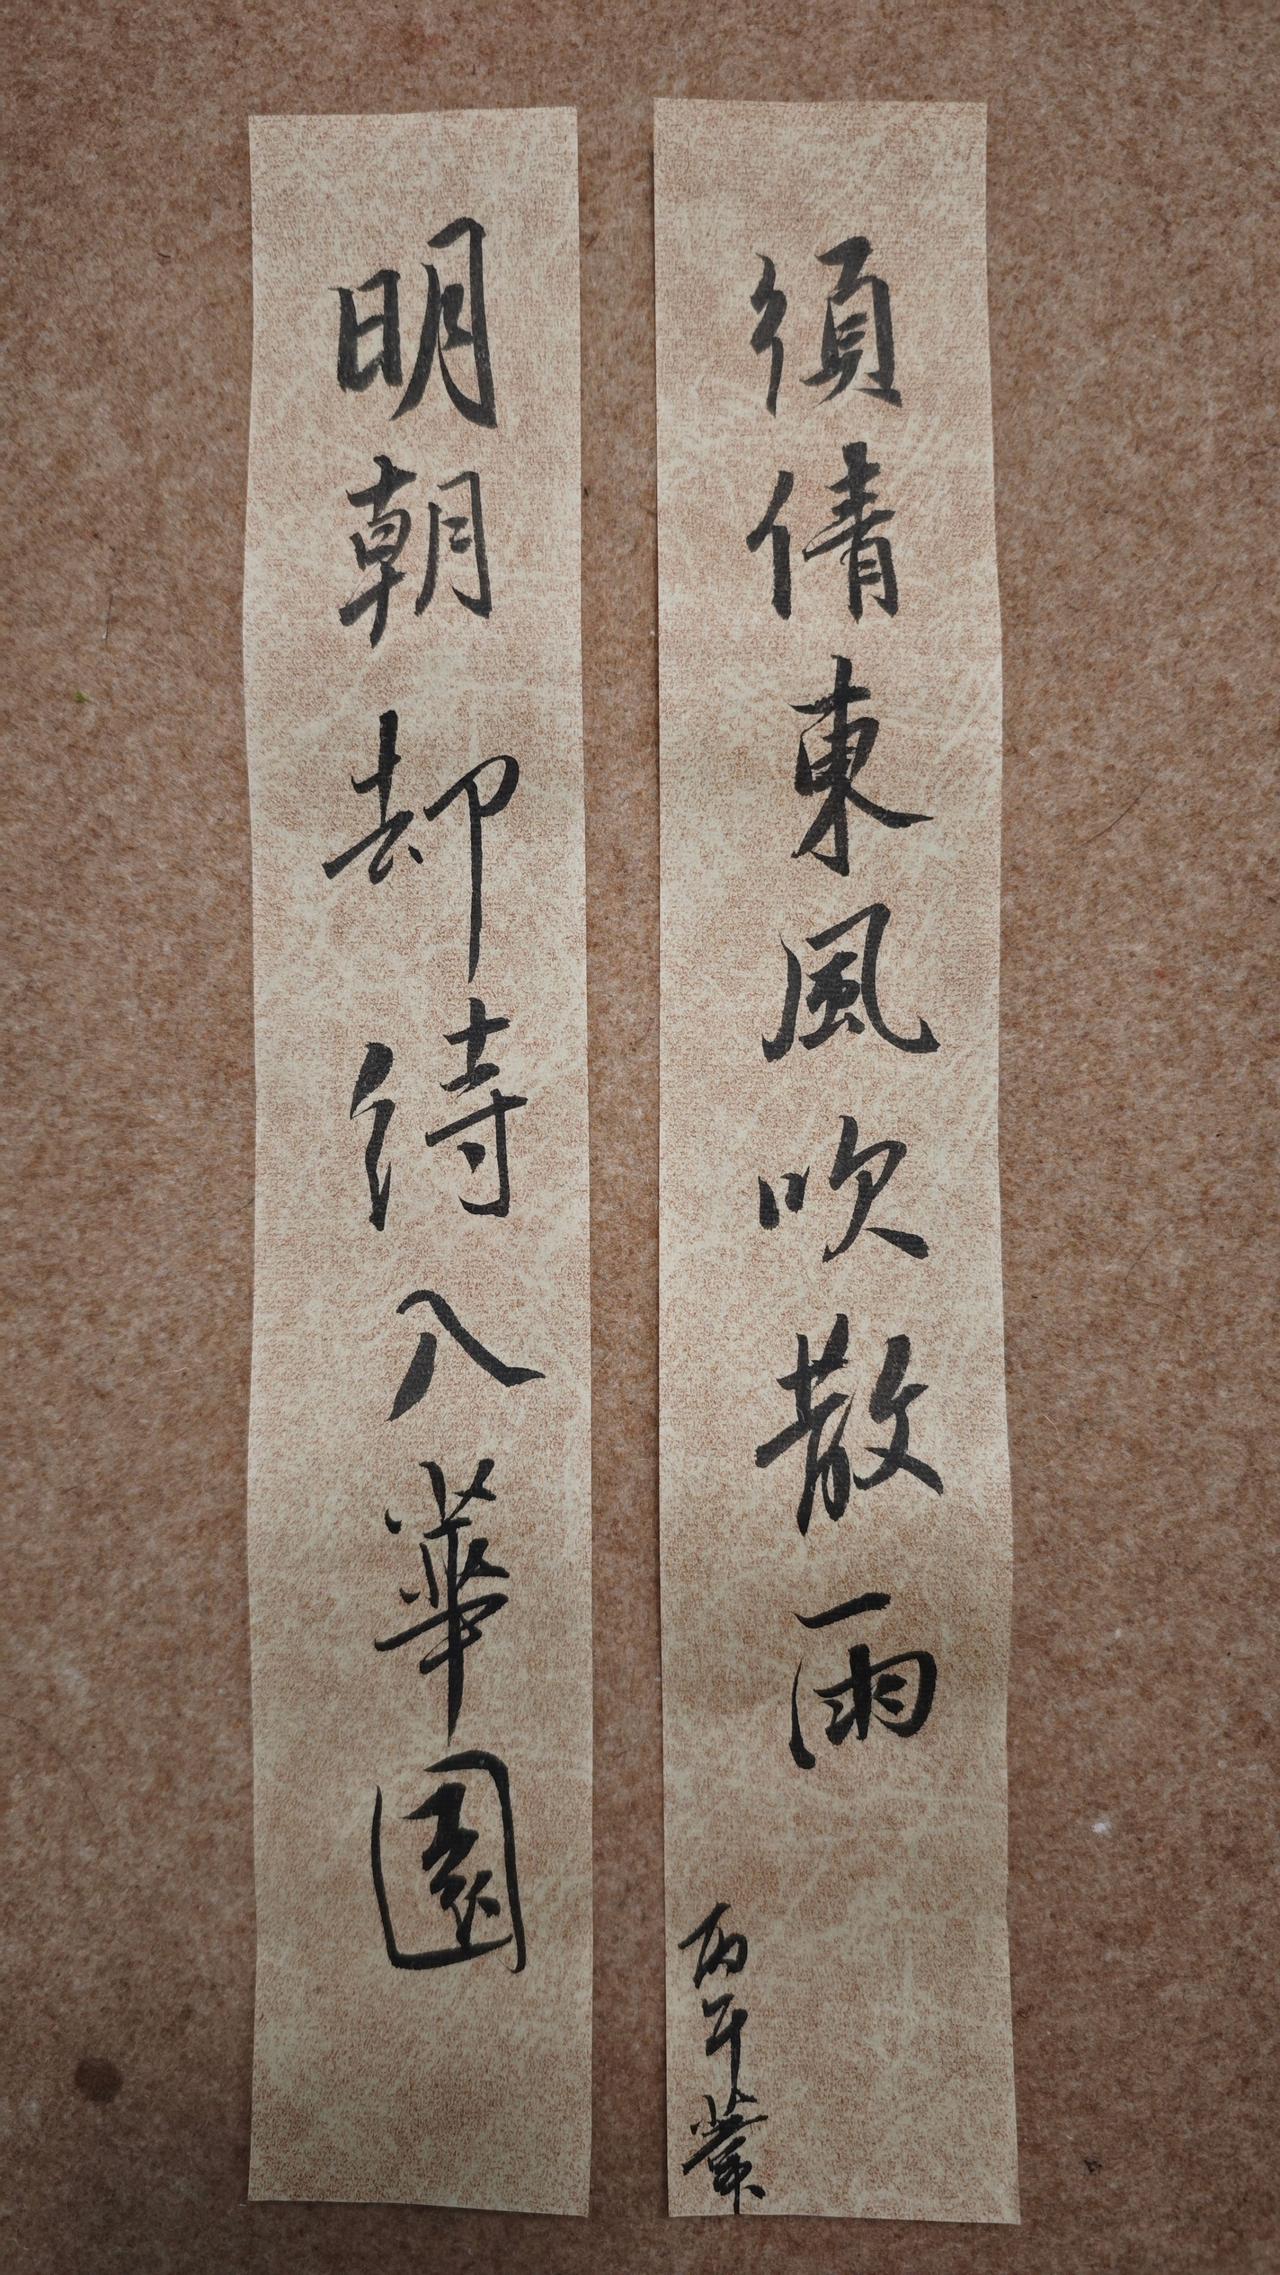 須倩東風吹散雨
丙午
明朝却待入華園